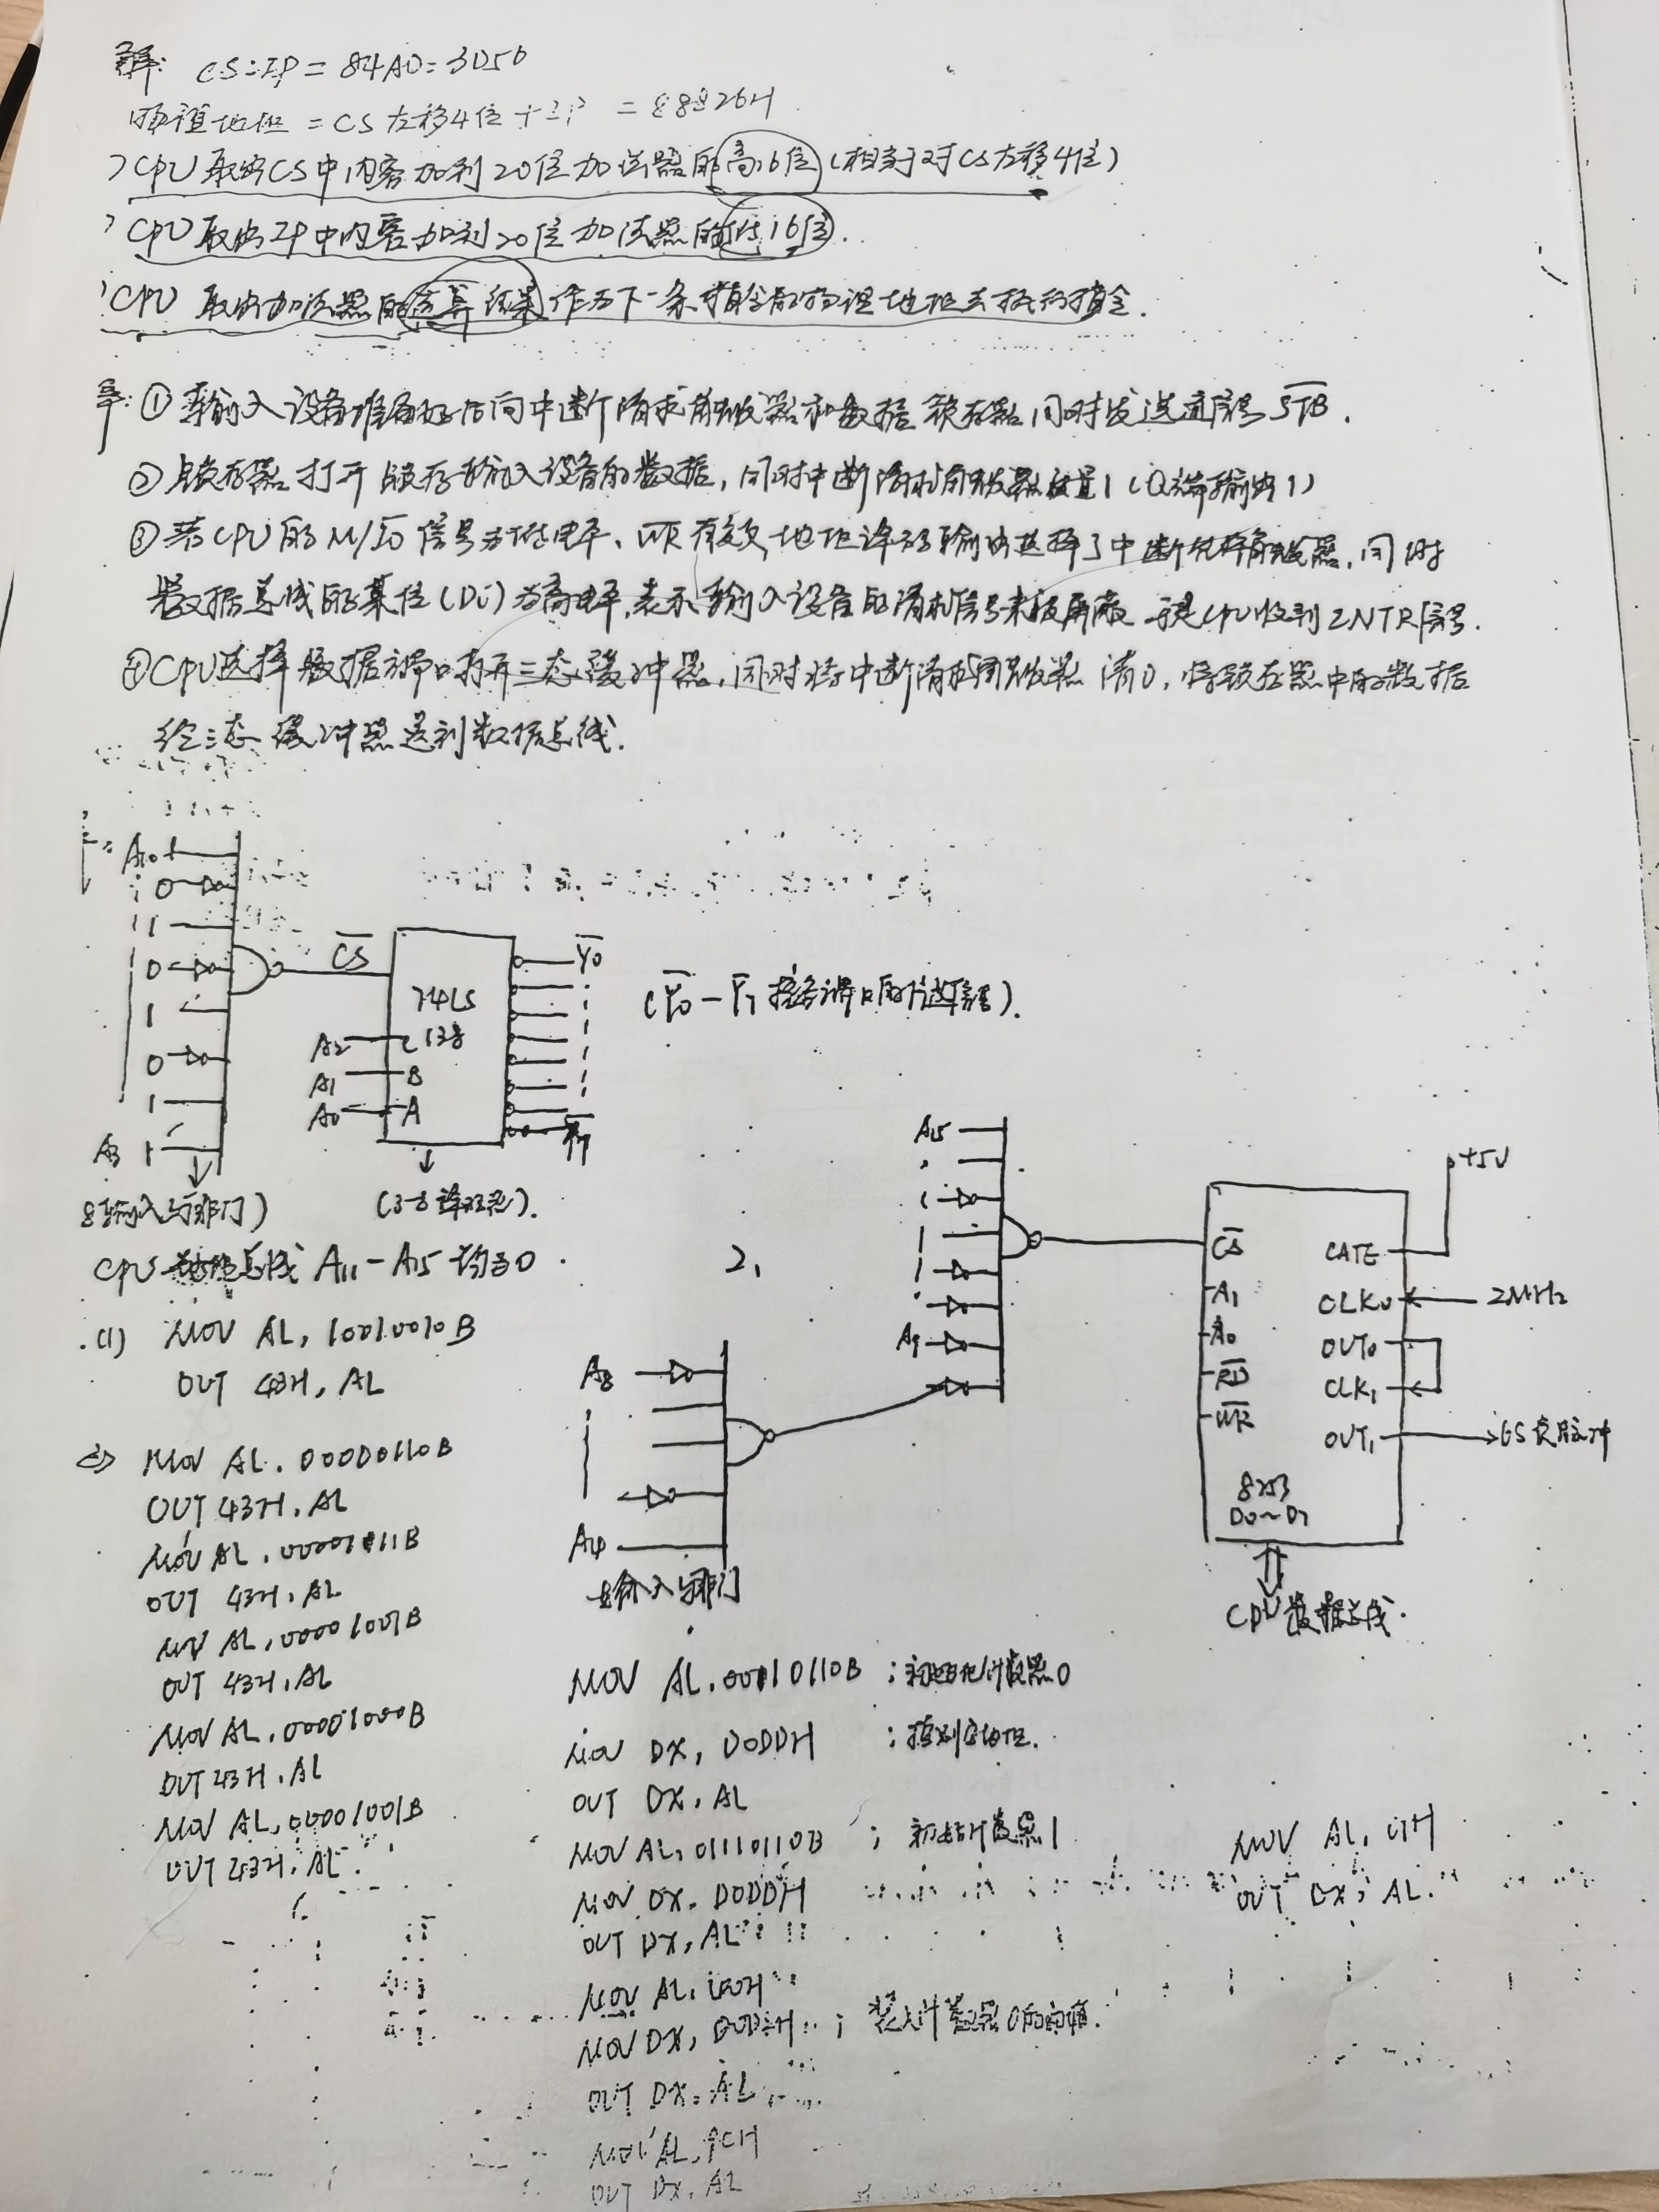 解: CS:IP = 84A0:3D56
物理地址 = CS左移4位 + IP = 88826H
CPU取出CS中内容加到20位加法器的高16位(相当于对CS左移4位)
CPU取出IP中内容加到20位加法器的低16位.
CPU 取出加法器的运算结果作为下一条指令的物理地址去执行指令.
① 输入设备准备好后向中断请求触发器和数据锁存器同时发选通信号 STB.
② 锁存器打开锁存输入设备的数据,同时中断请求触发器被置1(Q端输出1)
③ 若CPU的M/IO信号为低电平、WR有效,地址译码输出选择了中断允许触发器,同时
数据总线的某位(Di)为高电平,表示输入设备的请求信号未被屏蔽 于是CPU收到INTR信号.
④CPU选择数据端口打开三态缓冲器,同时将中断请求触发器清0,将锁存器中的数据
经三态缓冲器送到数据总线.
A10 1
0
1
0
1
0
1
A3 1
CS
74LS
138
A2 C
A1 B
A0 A
Y0
Y7
(Y0-Y7 接各端口的片选信号).
8输入与非门)
(3-8译码器).
CPU地址总线 A11-A15 均为0
(1) MOV AL, 10010010B
OUT 43H, AL
MOV AL, 00000110B
OUT 43H, AL
MOV AL,
OUT 43H, AL
MOV AL, 00001001B
OUT 43H, AL
MOV AL, 00001000B
OUT 43H, AL
MOV AL, 00001001B
OUT 43H, AL.
2,
A15
A9
A8
A4
输入与非门
CS
A1
A0
RD
WR
8253
D0~D7
GATE
+5V
CLK0
2MHz
OUT0
CLK1
OUT1
负脉冲
CPU数据总线.
MOV AL, 00110110B ; 初始化计数器0
MOV DX, D0DDH ;
OUT DX, AL
MOV AL, 01110110B ; 初始计数器1
MOV DX, D0DDH
OUT DX, AL
MOV AL,
MOV DX, ; 装入计数器0的初值.
OUT DX, AL
MOV AL, 9CH
OUT DX, AL
MOV AL,
OUT DX, AL.